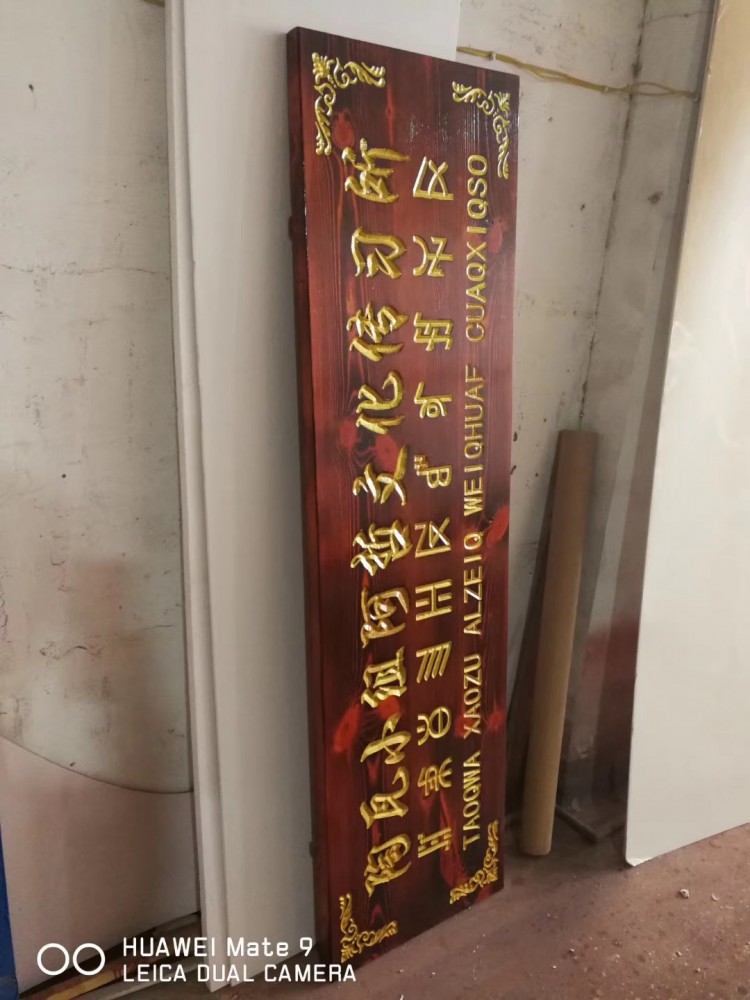 陶瓦小组阿哲文化传习所
TAOQWA XAOZU ALZEIQ WEIQHUAF CUAQXIQSO
HUAWEI Mate 9
LEICA DUAL CAMERA